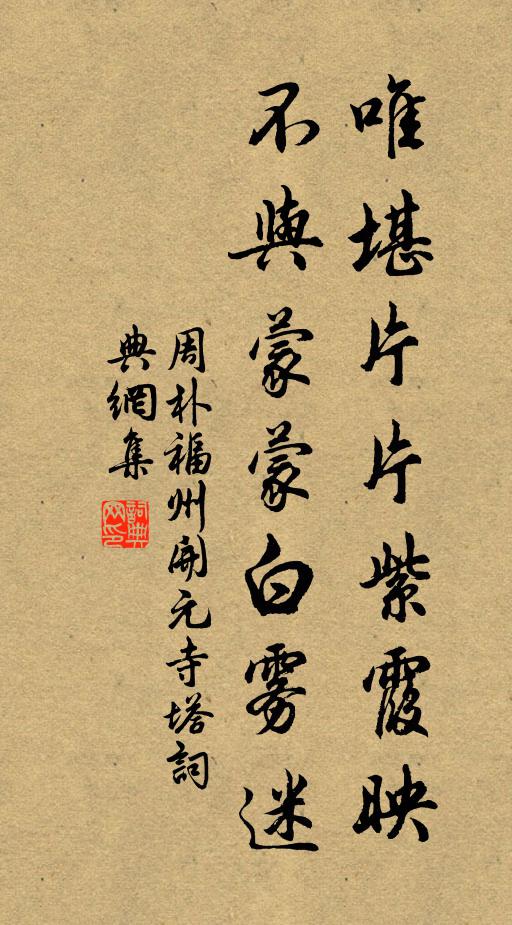 唯堪片片紫霞映
不與蒙蒙白雾迷
周朴福州開元寺塔詞
典網集
詞典網印